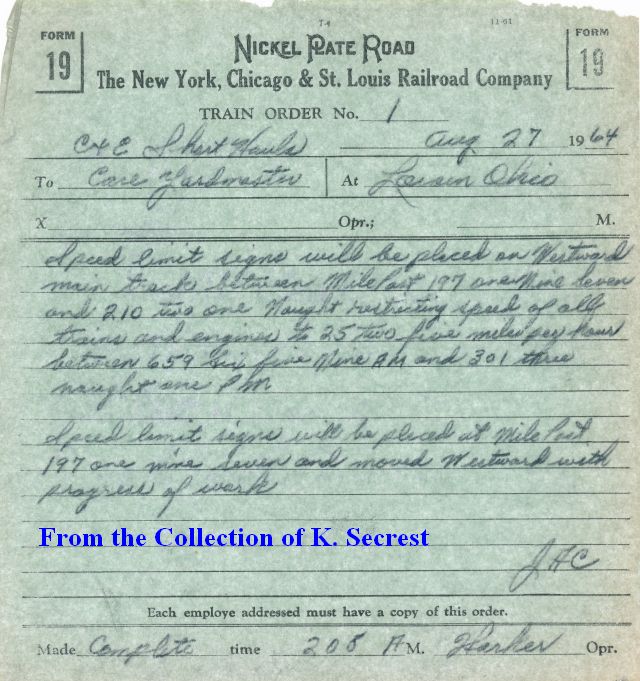 FORM 19
T4
11-61
FORM 19
NICKEL PLATE ROAD
The New York, Chicago & St. Louis Railroad Company
TRAIN ORDER No. 1
C&E Short Hauls Aug 27 1964
To Care Yardmaster At Lorain Ohio
X Opr.; M.
Speed limit signs will be placed on Westward
main track between Mile Post 197 one Nine Seven
and 210 two one Naught restricting speed of all
trains and engines to 25 two five miles per hour
between 659 Six five Nine AM and 301 three
naught one PM
Speed limit signs will be placed at Mile Post
197 one nine seven and moved Westward with
progress of work
From the Collection of K. Secrest
JAC
Each employe addressed must have a copy of this order.
Made Complete time 205 A M. Harker Opr.